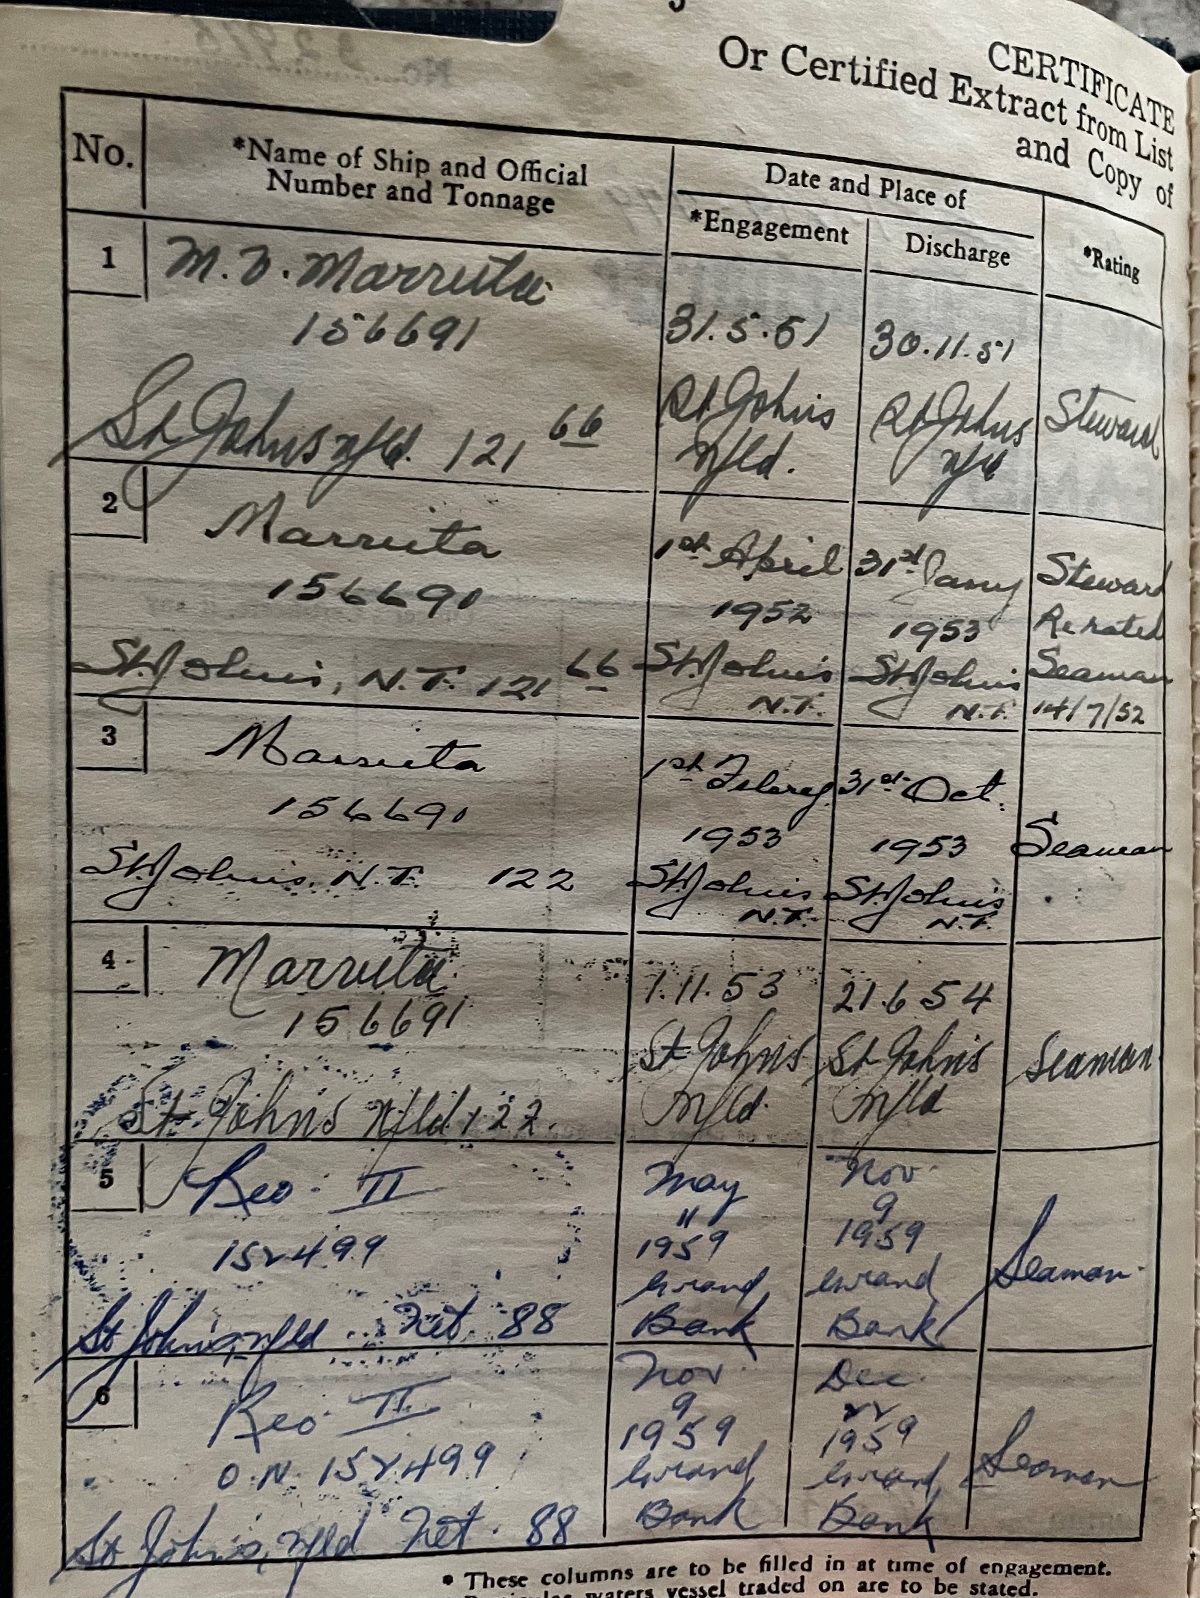 CERTIFICATE
Or Certified Extract from List
and Copy of
No.
*Name of Ship and Official
Number and Tonnage
Date and Place of
*Engagement
Discharge
*Rating
1
M.V. Marruta
156691
St Johns Nfld. 121 66
31.5.51
St Johns
Nfld.
30.11.51
St Johns
Nfld
Steward
2
Marruta
156691
St. John's, N.F. 121 66
1st April
1952
St. John's
N.F.
31st Jany
1953
St. John's
N.F.
Steward
Rerated
Seaman
14/7/52
3
Marruta
156691
St. John's, N.F. 122
1st Febry
1953
St. John's
N.F.
31st Oct.
1953
St. John's
N.F.
Seaman
4
Marruta
156691
St. Johns Nfld 122.
1.11.53
St Johns
Nfld.
21.6.54
St John's
Nfld
Seaman
5
Reo II
152499
St Johns, Nfld Net 88
May
11
1959
Grand
Bank
Nov
9
1959
Grand
Bank
Seaman
6
Reo II
O.N. 152499
St Johns, Nfld Net. 88
Nov
9
1959
Grand
Bank
Dec
22
1959
Grand
Bank
Seaman
* These columns are to be filled in at time of engagement.
waters vessel traded on are to be stated.